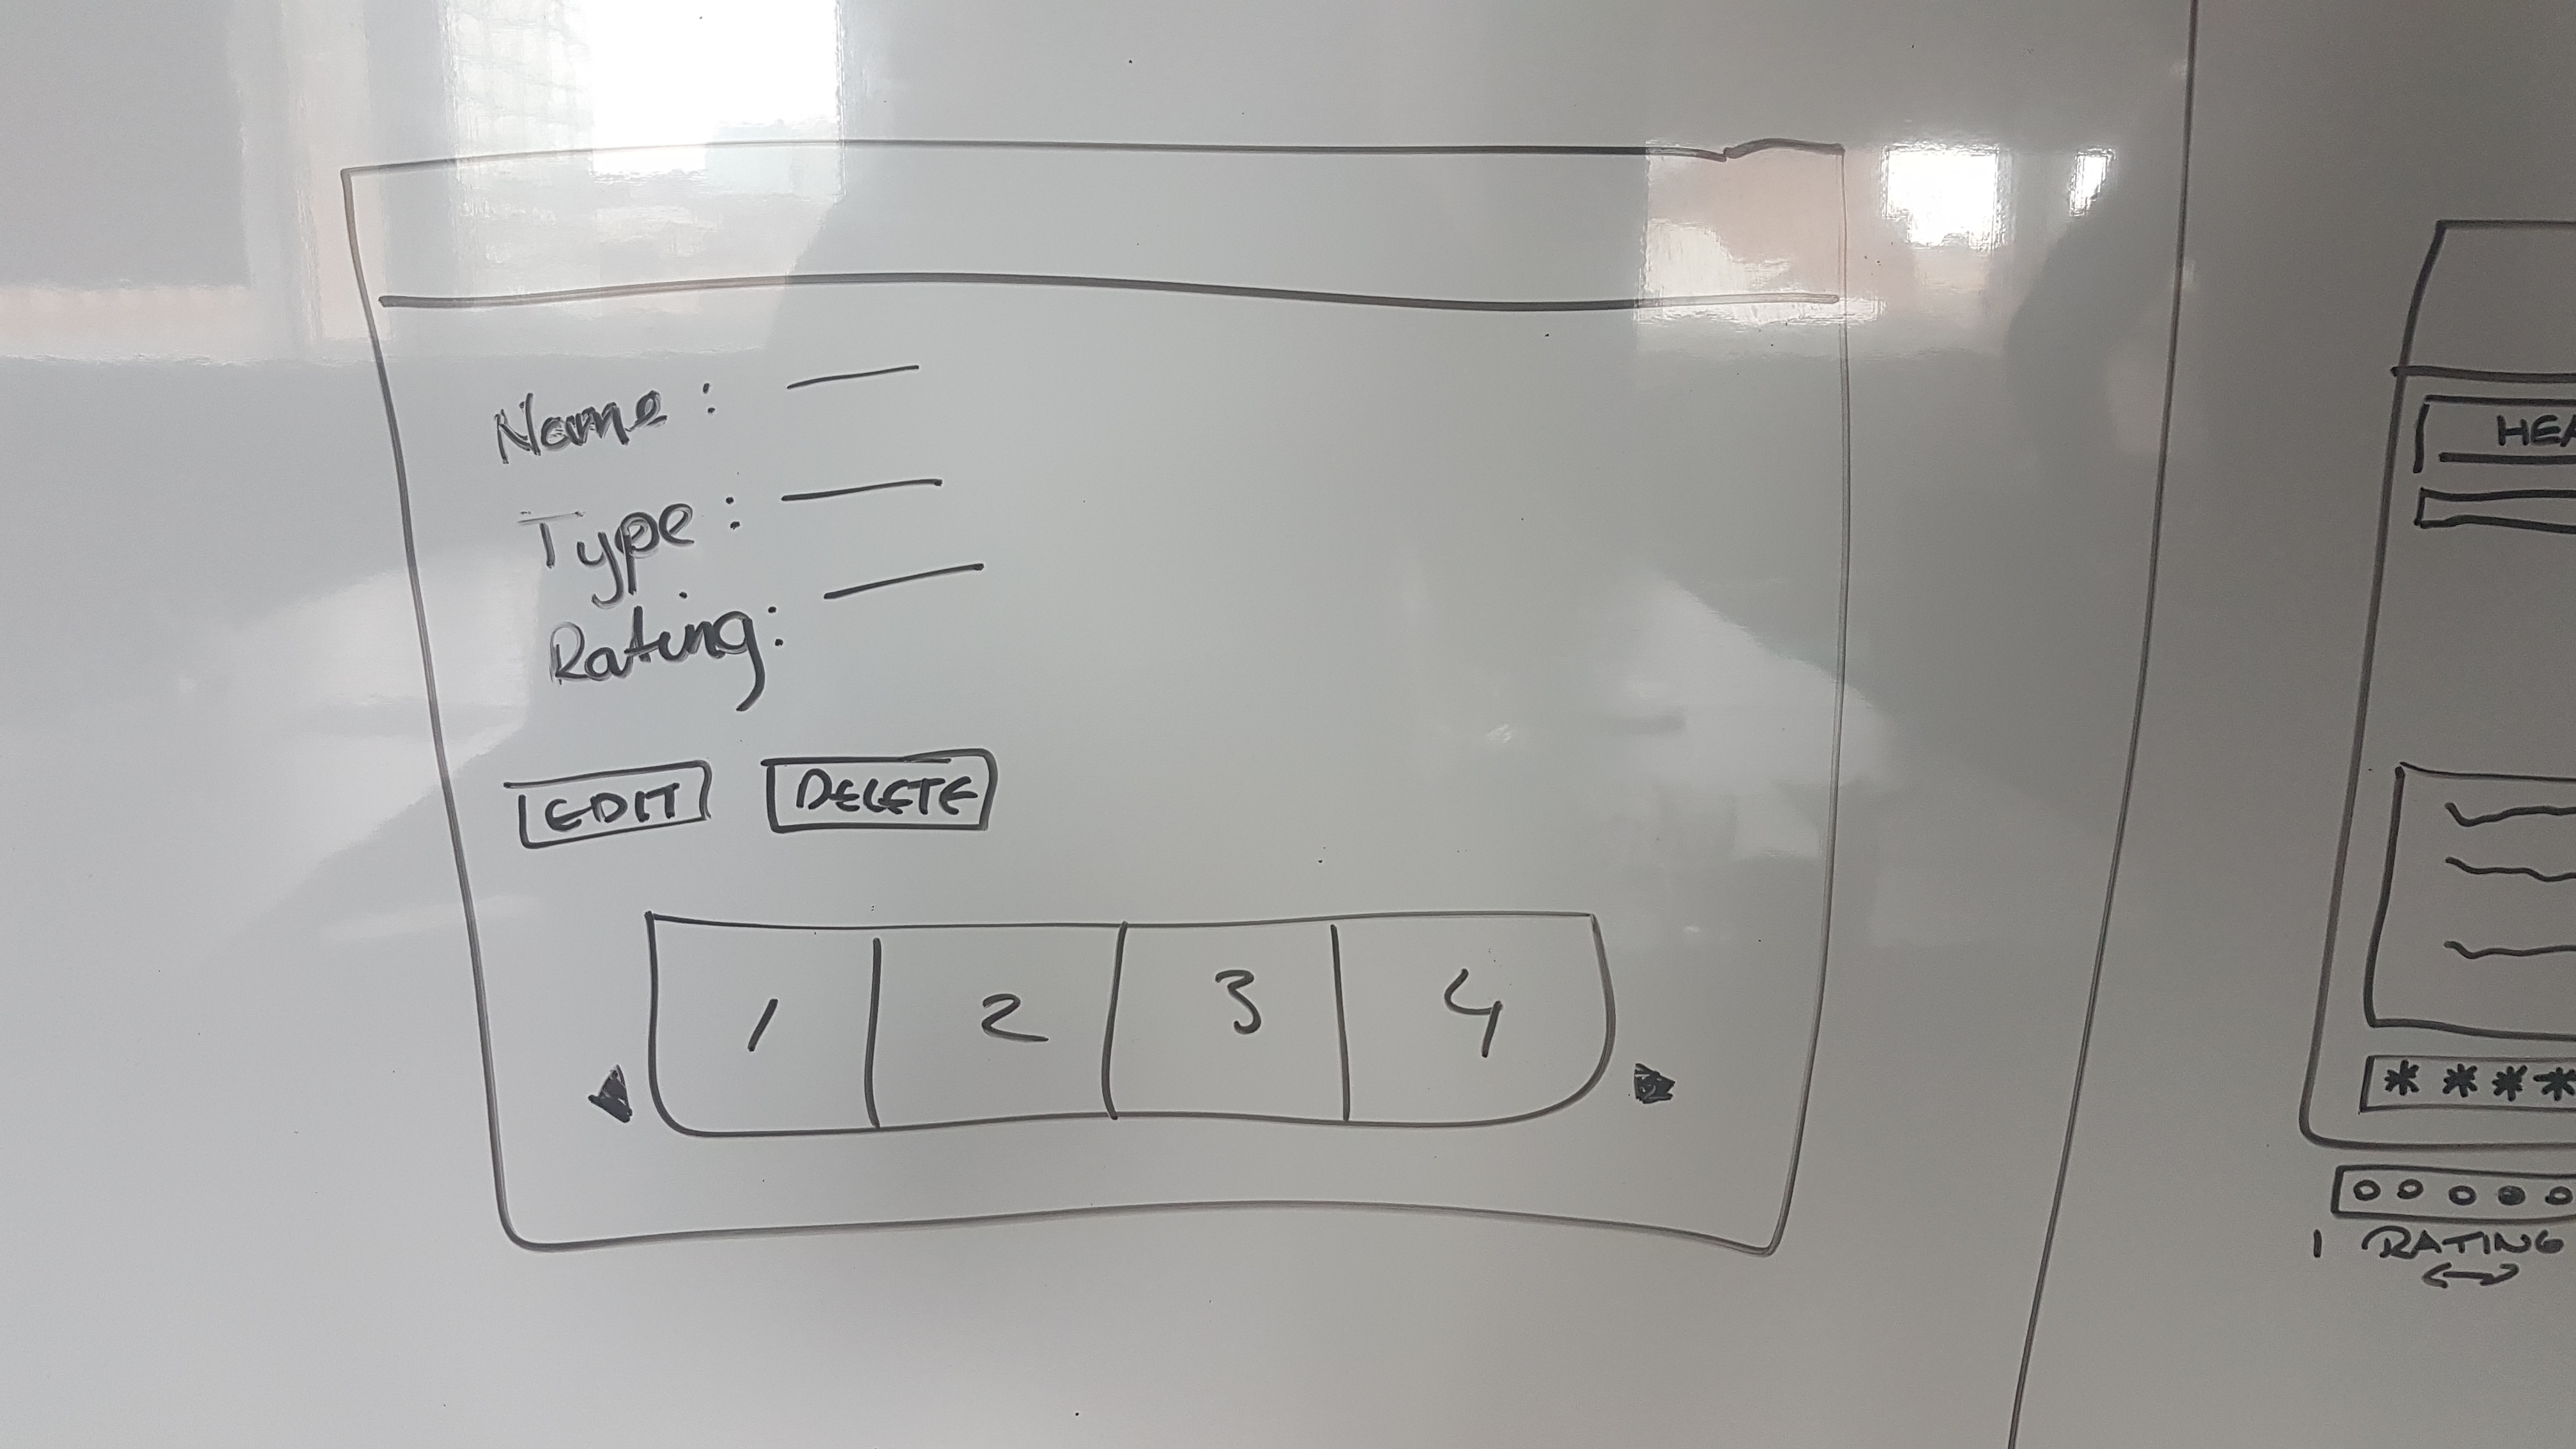 Name :
Type :
Rating:
EDIT DELETE
1 2 3 4
HEA
* * * *
1 RATING